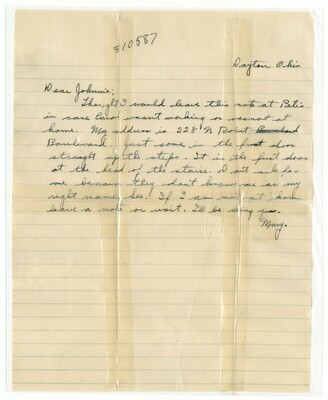 910587
Dayton Ohio
Dear Johnnie;
Thought I would leave this note at Pete's
in case Carol wasn't working or was not at
home. My address is 228½ N Robert
Boulevard, just come in the first door
straight up the steps. It is the first door
at the head of the stairs. Don't ask for
me because they don't know me as my
right name, see. If I am not at home
leave a note or wait. I'll be seeing you.
Mary.